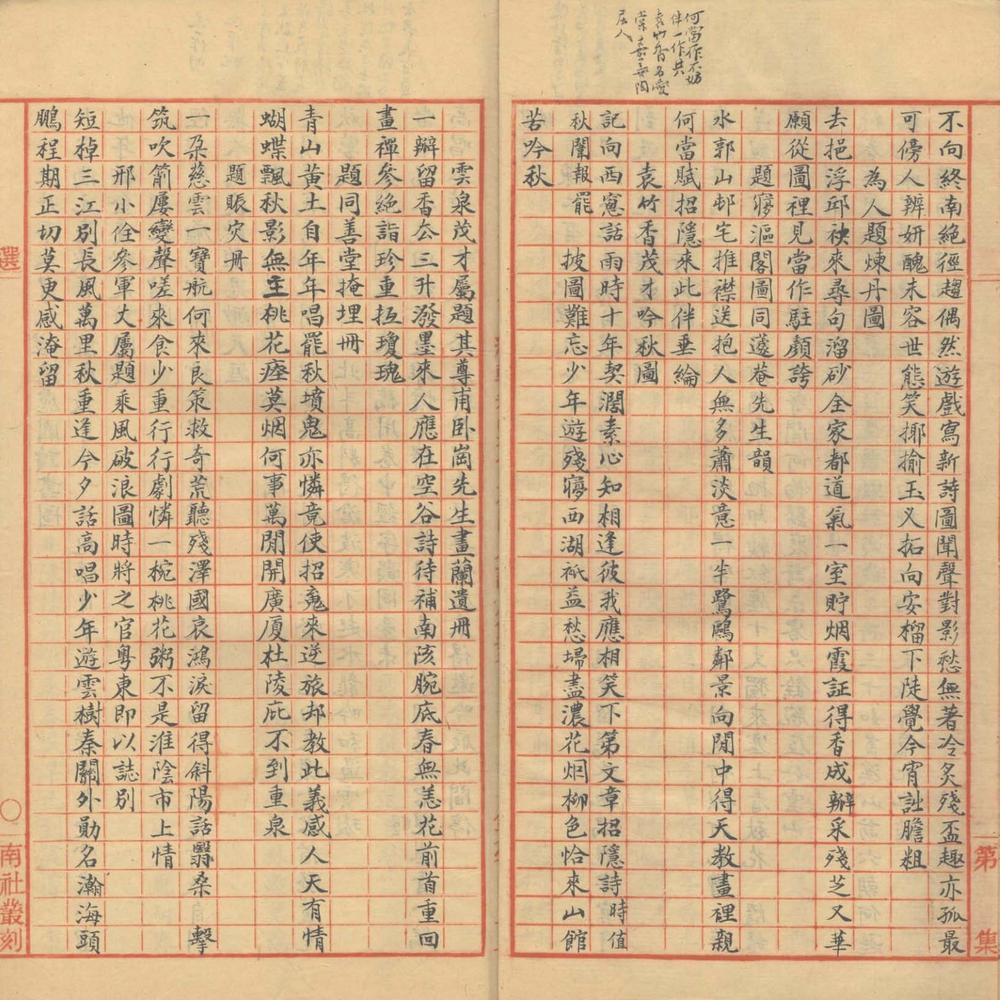 何當作不妨
伴一作共
袁竹香名愛
棠嘉善陶
莊人
第 集
不向終南絕徑趨偶然遊戲寫新詩圖聞聲對影愁無著冷炙殘盃趣亦孤最
可傍人辨妍醜未容世態笑揶揄玉叉拓向安榴下陡覺今宵詘膽粗
為人題煉丹圖
去挹浮邱袂來尋句溜砂全家都道氣一室貯烟霞証得香成瓣采殘芝又華
願從圖裡見當作駐顏誇
題寱漚閣圖同蘧菴先生韻
水郭山邨宅推襟送抱人無多蕭淡意一半鷺鷗鄰景向閒中得天教畫裡親
何當賦招隱來此伴垂綸
袁竹香茂才吟秋圖
記向西窻話雨時十年契濶素心知相逢彼我應相笑下第文章招隱詩時值
秋闈報罷 披圖難忘少年遊殘寱西湖祇益愁埽盡濃花烟柳色恰來山館
苦吟秋
雲泉茂才屬題其尊甫卧崗先生畫蘭遺冊
一瓣留香厺三升潑墨來人應在空谷詩待補南陔腕底春無恙花前首重回
畫禪參絕詣珍重抵瓊瑰
題同善堂掩埋冊
青山黃土自年年唱罷秋墳鬼亦憐竟使招魂來逆旅邦教此義感人天有情
蝴蝶飄秋影無主桃花瘞莫烟何事萬閒開廣厦杜陵庇不到重泉
題賑灾冊
一朶慈雲一寶航何來良策救奇荒聽殘澤國哀鴻淚留得斜陽話翳桑 擊
筑吹簫屢變聲嗟來食少重行行劇憐一椀桃花粥不是淮陰市上情
邢小佺參軍大屬題乘風破浪圖時將之官粵東即以誌別
短棹三江別長風萬里秋重逢今夕話高唱少年遊雲樹秦關外勛名瀚海頭
鵬程期正切莫更感淹留
選 〇 南社叢刻